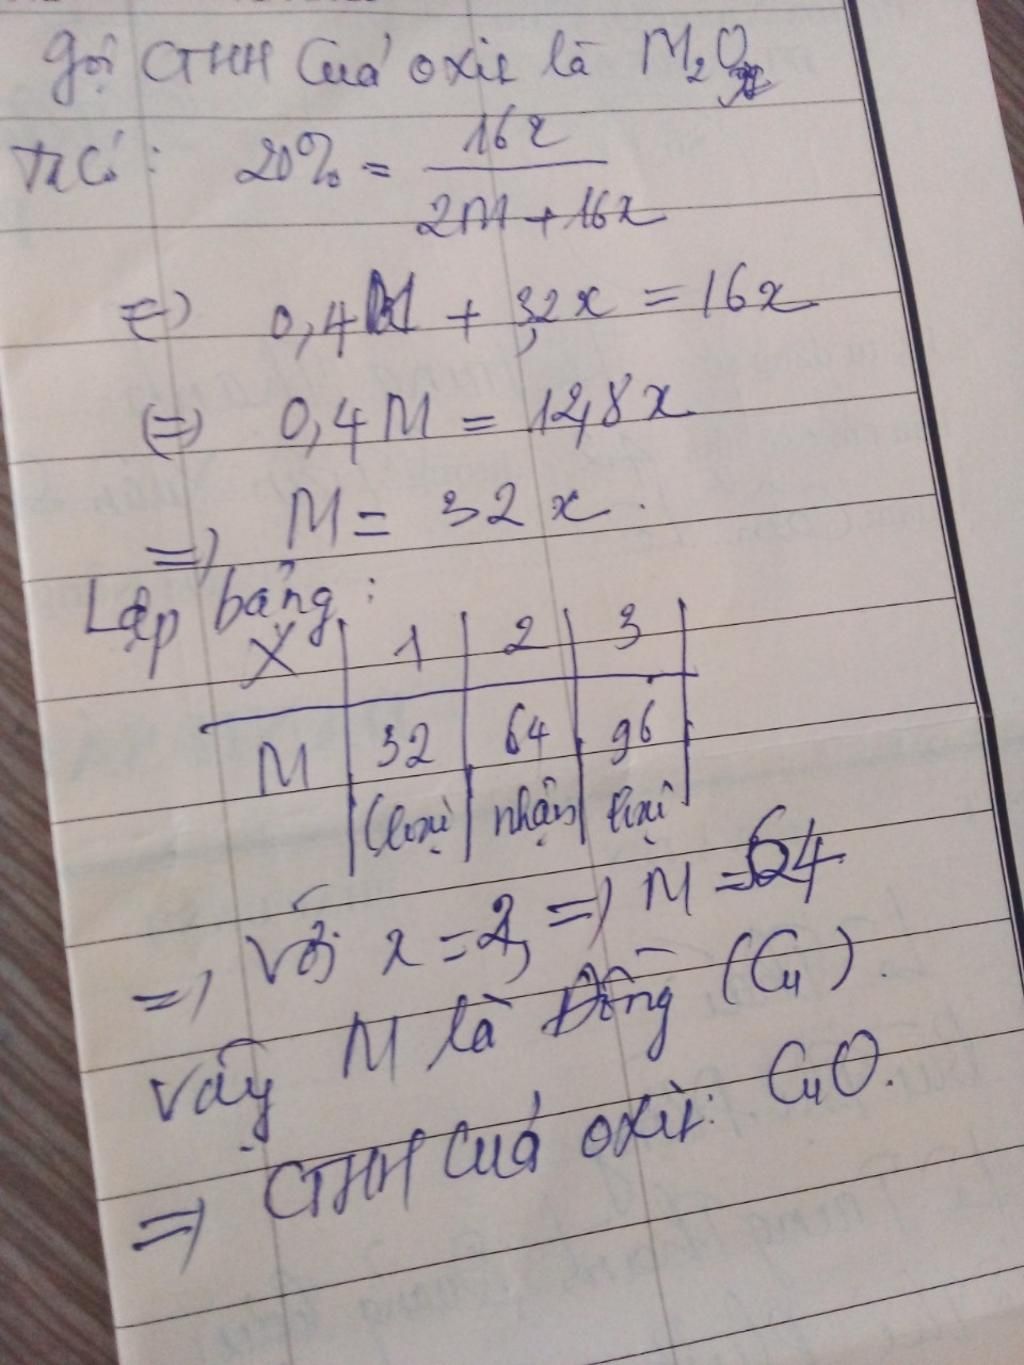 Gọi CTHH của oxit là M₂Oₓ
Ta có: 20% = 16x / 2M + 16x
(=) 0,4M + 3,2x = 16x
(=) 0,4M = 12,8x
=) M = 32x.
Lập bảng:
X | 1 | 2 | 3
M | 32 | 64 | 96
(loại | nhận | loại
=) Với x = 2, =) M = 64
Vậy M là Đồng (Cu).
=) CTHH của oxit: CuO.